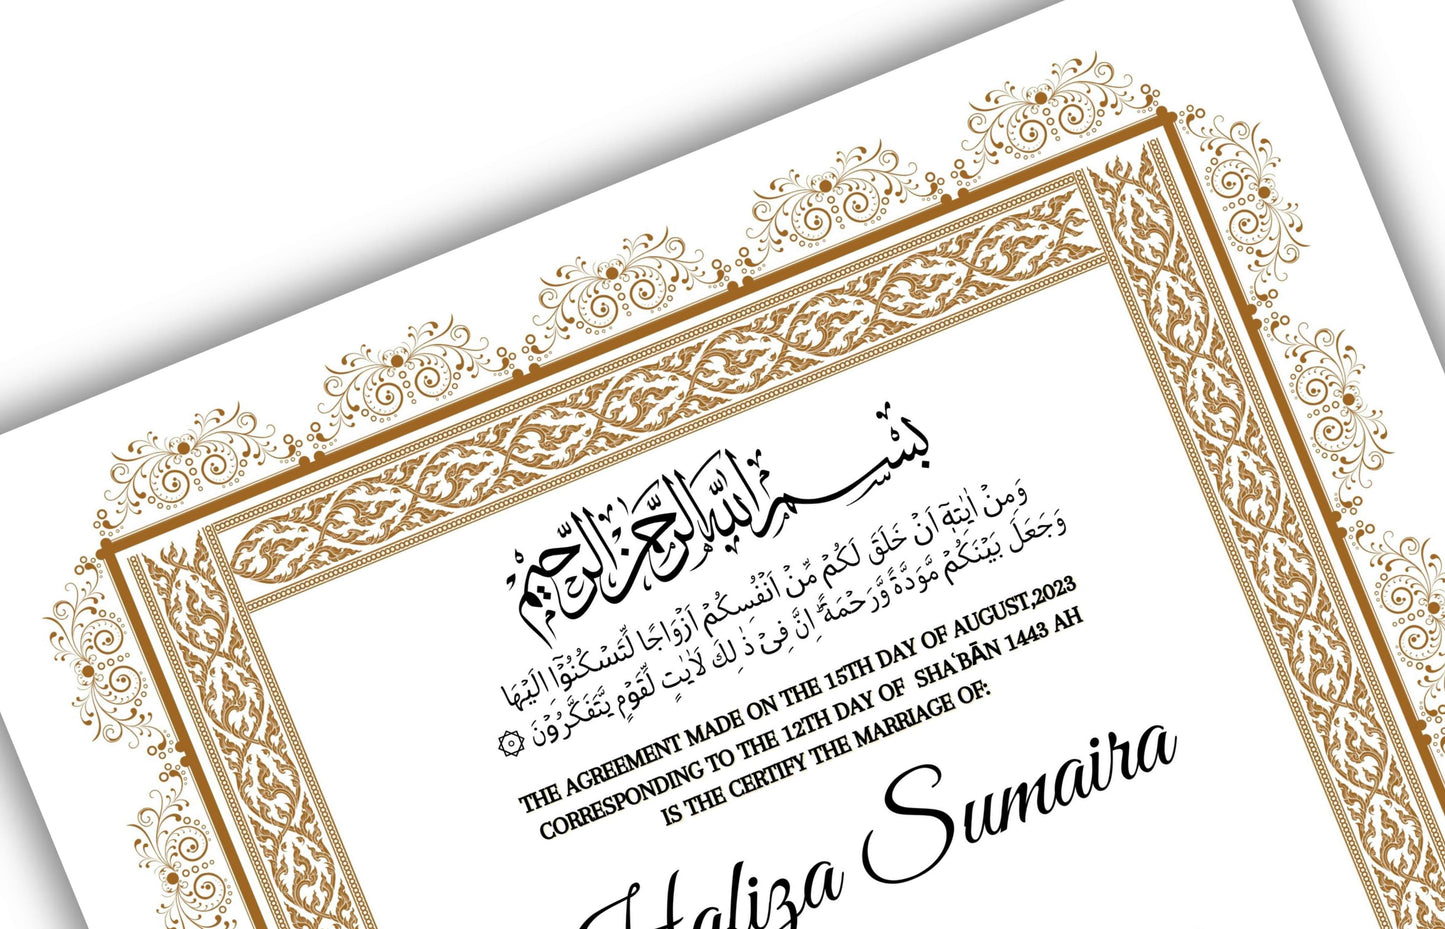 بسم الله الرحمن الرحيم
وَمِنْ اٰيٰتِهٖٓ اَنْ خَلَقَ لَكُمْ مِّنْ اَنْفُسِكُمْ اَزْوَاجًا لِّتَسْكُنُوْٓا اِلَيْهَا
وَجَعَلَ بَيْنَكُمْ مَّوَدَّةً وَّرَحْمَةً ۗ اِنَّ فِيْ ذٰلِكَ لَاٰيٰتٍ لِّقَوْمٍ يَّتَفَكَّرُوْنَ ۞
THE AGREEMENT MADE ON THE 15TH DAY OF AUGUST,2023
CORRESPONDING TO THE 12TH DAY OF SHAʿBĀN 1443 AH
IS THE CERTIFY THE MARRIAGE OF:
Hafiza Sumaira